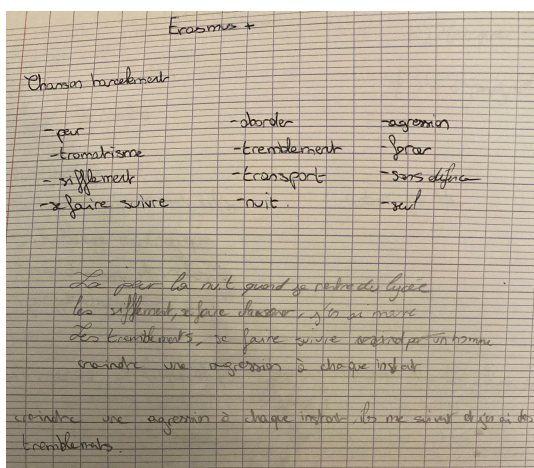 Erasmus +
Chanson harcelement
- peur
- tromatisme
- sifflement
- se faire suivre
- aborder
- tremblement
- transport
- nuit.
- agression
- forcer
- sans défence
- seul
La peur la nuit quand je rentre du lycée
les sifflement, se faire, j'en ai marre
Les tremblements, se faire suivre par un homme
craindre une agression à chaque instant
craindre une agression à chaque instant, ils me suivent et j'en ai des
tremblements.